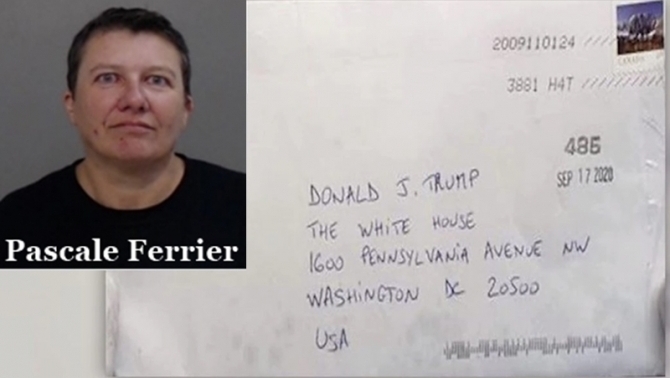 Pascale Ferrier
2009110124
3881 H4T
CANADA
486
SEP 17 2020
DONALD J. TRUMP
THE WHITE HOUSE
1600 PENNSYLVANIA AVENUE NW
WASHINGTON DC 20500
USA